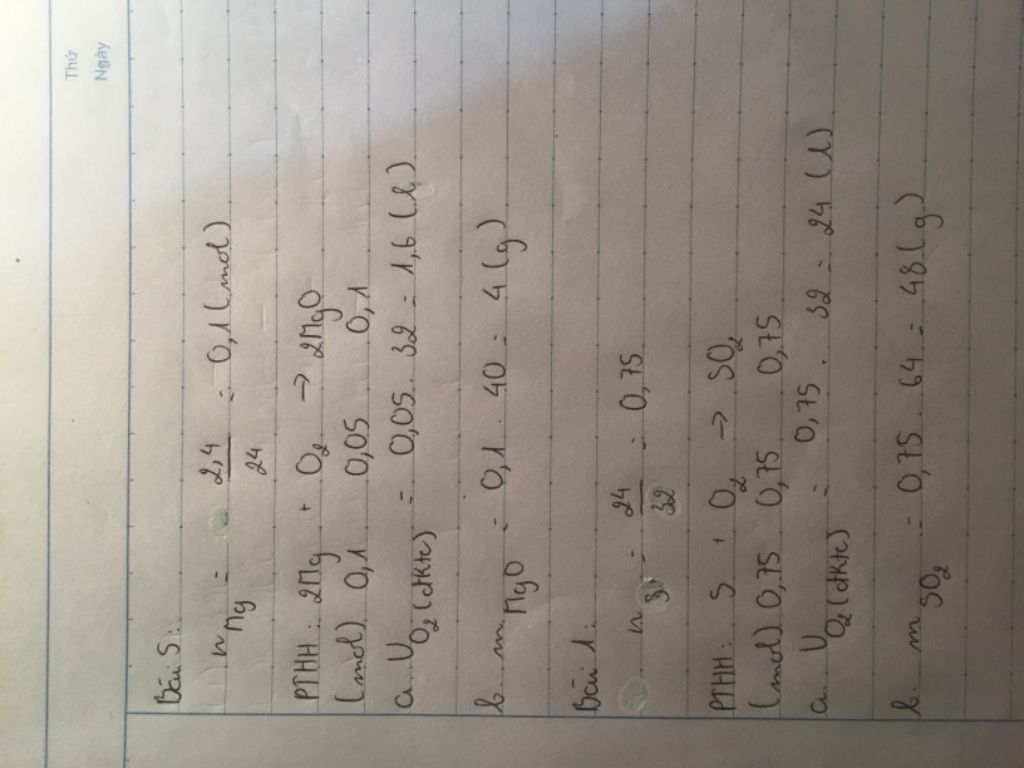 Thứ
Ngày
Bài 5:
n Mg = 2,4 / 24 = 0,1 (mol)
PTHH: 2Mg + O2 → 2MgO
(mol) 0,1 0,05 0,1
a. V O2 (đktc) = 0,05 . 32 = 1,6 (l)
b. m MgO = 0,1 . 40 = 4 (g)
Bài 1:
n = 24 / 32 = 0,75
PTHH: S + O2 → SO2
(mol) 0,75 0,75 0,75
a. V O2 (đktc) = 0,75 . 32 = 24 (l)
b. m SO2 = 0,75 . 64 = 48 (g)